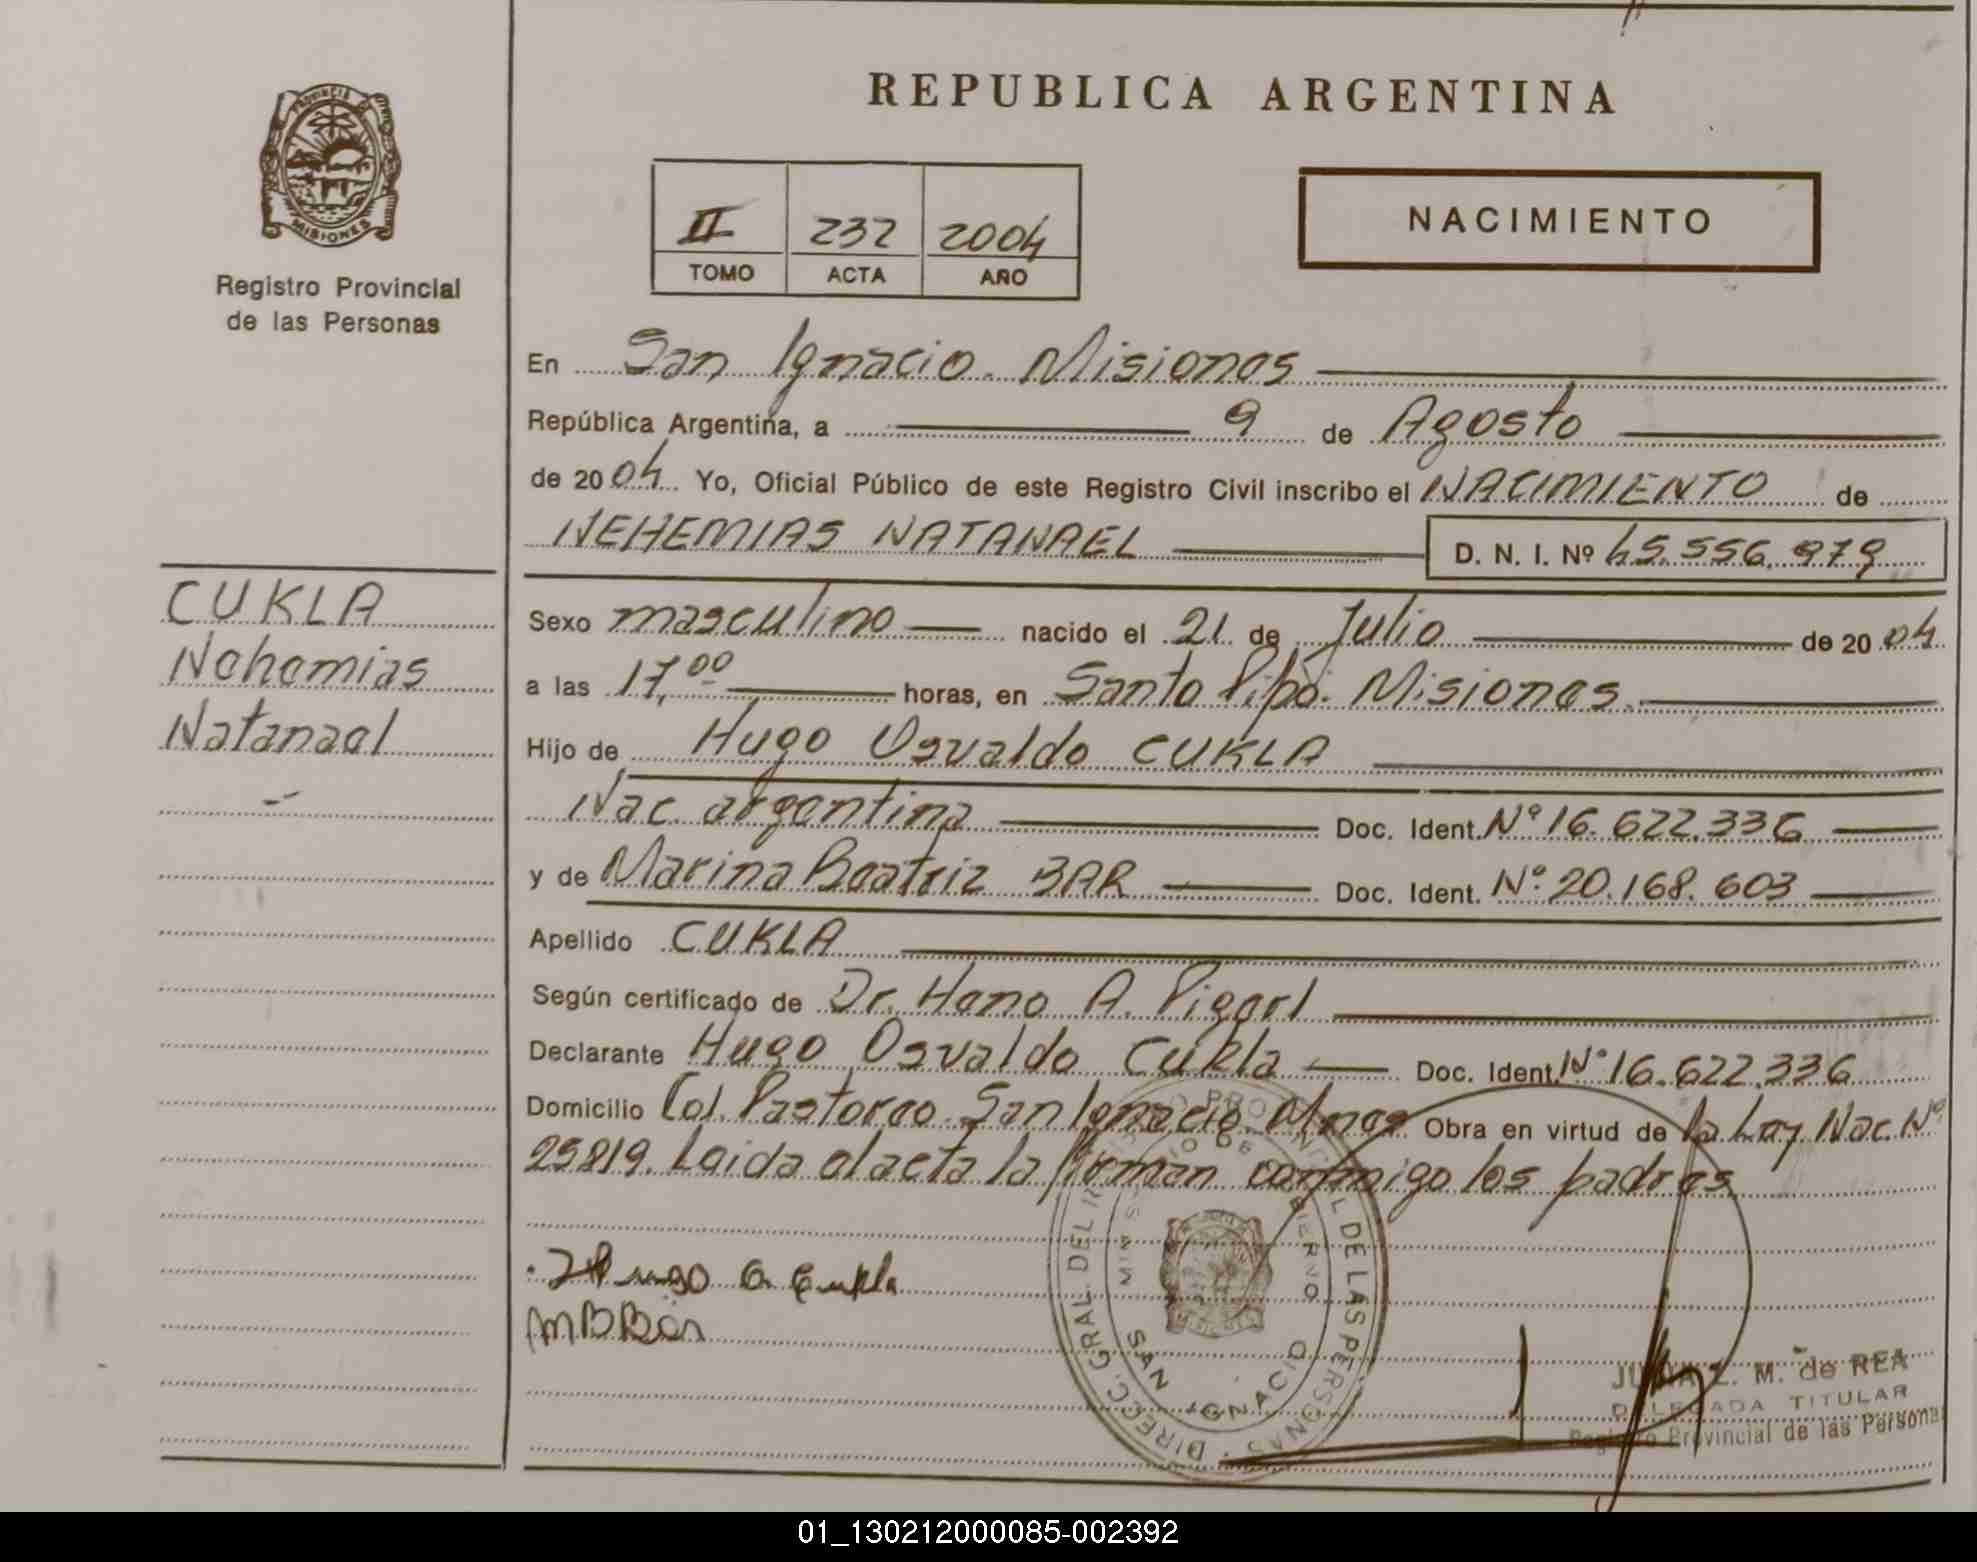 REPUBLICA ARGENTINA
PROVINCIA DE
MISIONES
Registro Provincial
de las Personas
II 232 2004
TOMO ACTA AÑO
NACIMIENTO
En San Ignacio. Misiones
República Argentina, a 9 de Agosto
de 2004 Yo, Oficial Público de este Registro Civil inscribo el NACIMIENTO de
NEHEMIAS NATANAEL D. N. I. Nº 45.556.979
CUKLA
Nehemias
Natanael
Sexo masculino nacido el 21 de Julio de 2004
a las 17,00 horas, en Santo Pipó. Misiones.
Hijo de Hugo Osvaldo CUKLA
Nac. argentina Doc. Ident. Nº 16.622.336
y de Marina Beatriz BAR Doc. Ident. Nº 20.168.603
Apellido CUKLA
Según certificado de Dr. Hano A.
Declarante Hugo Osvaldo Cukla Doc. Ident. Nº 16.622.336
Domicilio Col. Pastoreo. San Ignacio. Mnes Obra en virtud de la Ley Nac. Nº
25819. Leida el acta la firman conmigo los padres
Hugo O. Cukla
MBBar
DIRECC. GRAL. DEL PROVINCIAL DE LAS PERSONAS
MINISTERIO DE GOBIERNO
SAN IGNACIO
M. de REA
DELEGADA TITULAR
Registro Provincial de las Personas
01_130212000085-002392